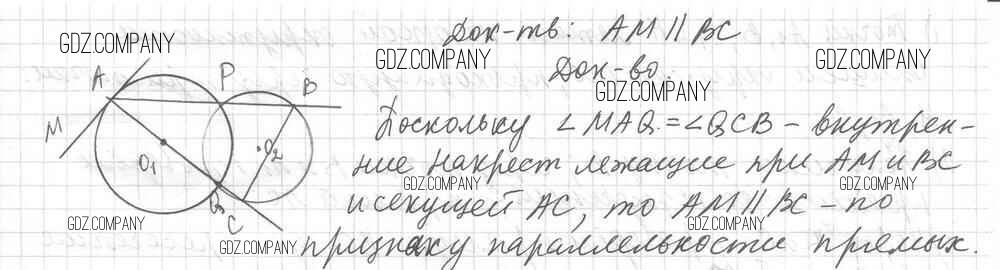 Док-ть: AM || BC
GDZ.COMPANY
GDZ.COMPANY
GDZ.COMPANY
Док-во.
GDZ.COMPANY
A P B
M
O₁ O₂
C
Поскольку ∠MAQ = ∠QCB – внутрен-
ние накрест лежащие при AM и BC
GDZ.COMPANY
GDZ.COMPANY
и секущей AC, то AM || BC – по
GDZ.COMPANY
GDZ.COMPANY
GDZ.COMPANY
признаку параллельности прямых.